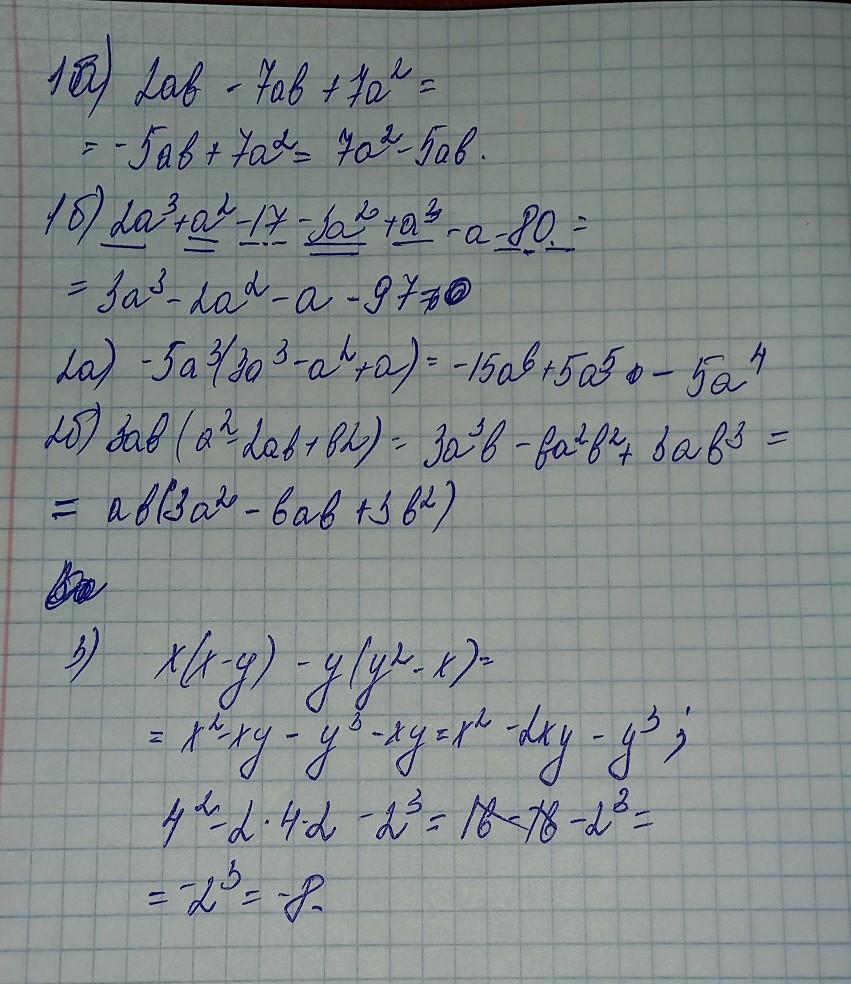 1а) 2ab - 7ab + 7a² =
= -5ab + 7a² = 7a² - 5ab.
1б) 2a³ + a² - 17 - 3a² + a³ - a - 80 =
= 3a³ - 2a² - a - 97
2а) -5a³(3a³ - a² + a) = -15a⁶ + 5a⁵ - 5a⁴
2б) 3ab (a² - 2ab + b2) = 3a³b - 6a²b² + 3ab³ =
= ab(3a² - 6ab + 3b²)
3) x(x-y) - y(y² - x) =
= x² - xy - y³ - xy = x² - 2xy - y³;
4² - 2·4·2 - 2³ = 16 - 16 - 2³ =
= -2³ = -8.